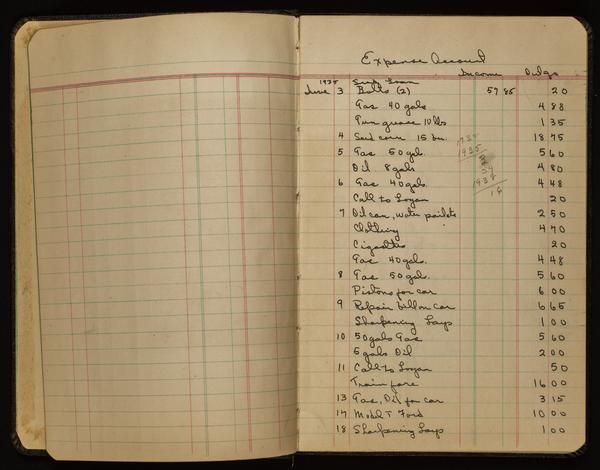 Expense Account
Income Outgo
1935 Seed Loan
June 3 Bolts (2) 57 85 20
Gas 40 gals 4 88
Gun grease 10 lbs 1 35
4 Seed corn 15 bu. 18 75
5 Gas 50 gal. 5 60
Oil 8 gals 4 80
6 Gas 40 gals. 4 48
Call to Logan 20
7 Oil can, water 2 50
Clothing 4 70
Cigarettes 20
Gas 40 gals. 4 48
8 Gas 50 gal. 5 60
Pistons for car 6 00
9 Repair bill on car 6 65
Sharpening Lays 1 00
10 50 gals Gas 5 60
5 gals Oil 2 00
11 Call to Logan 50
Train fare 16 00
13 Gas, Oil for car 3 15
17 Model T Ford 10 00
18 Sharpening Lays 1 00
1935
16